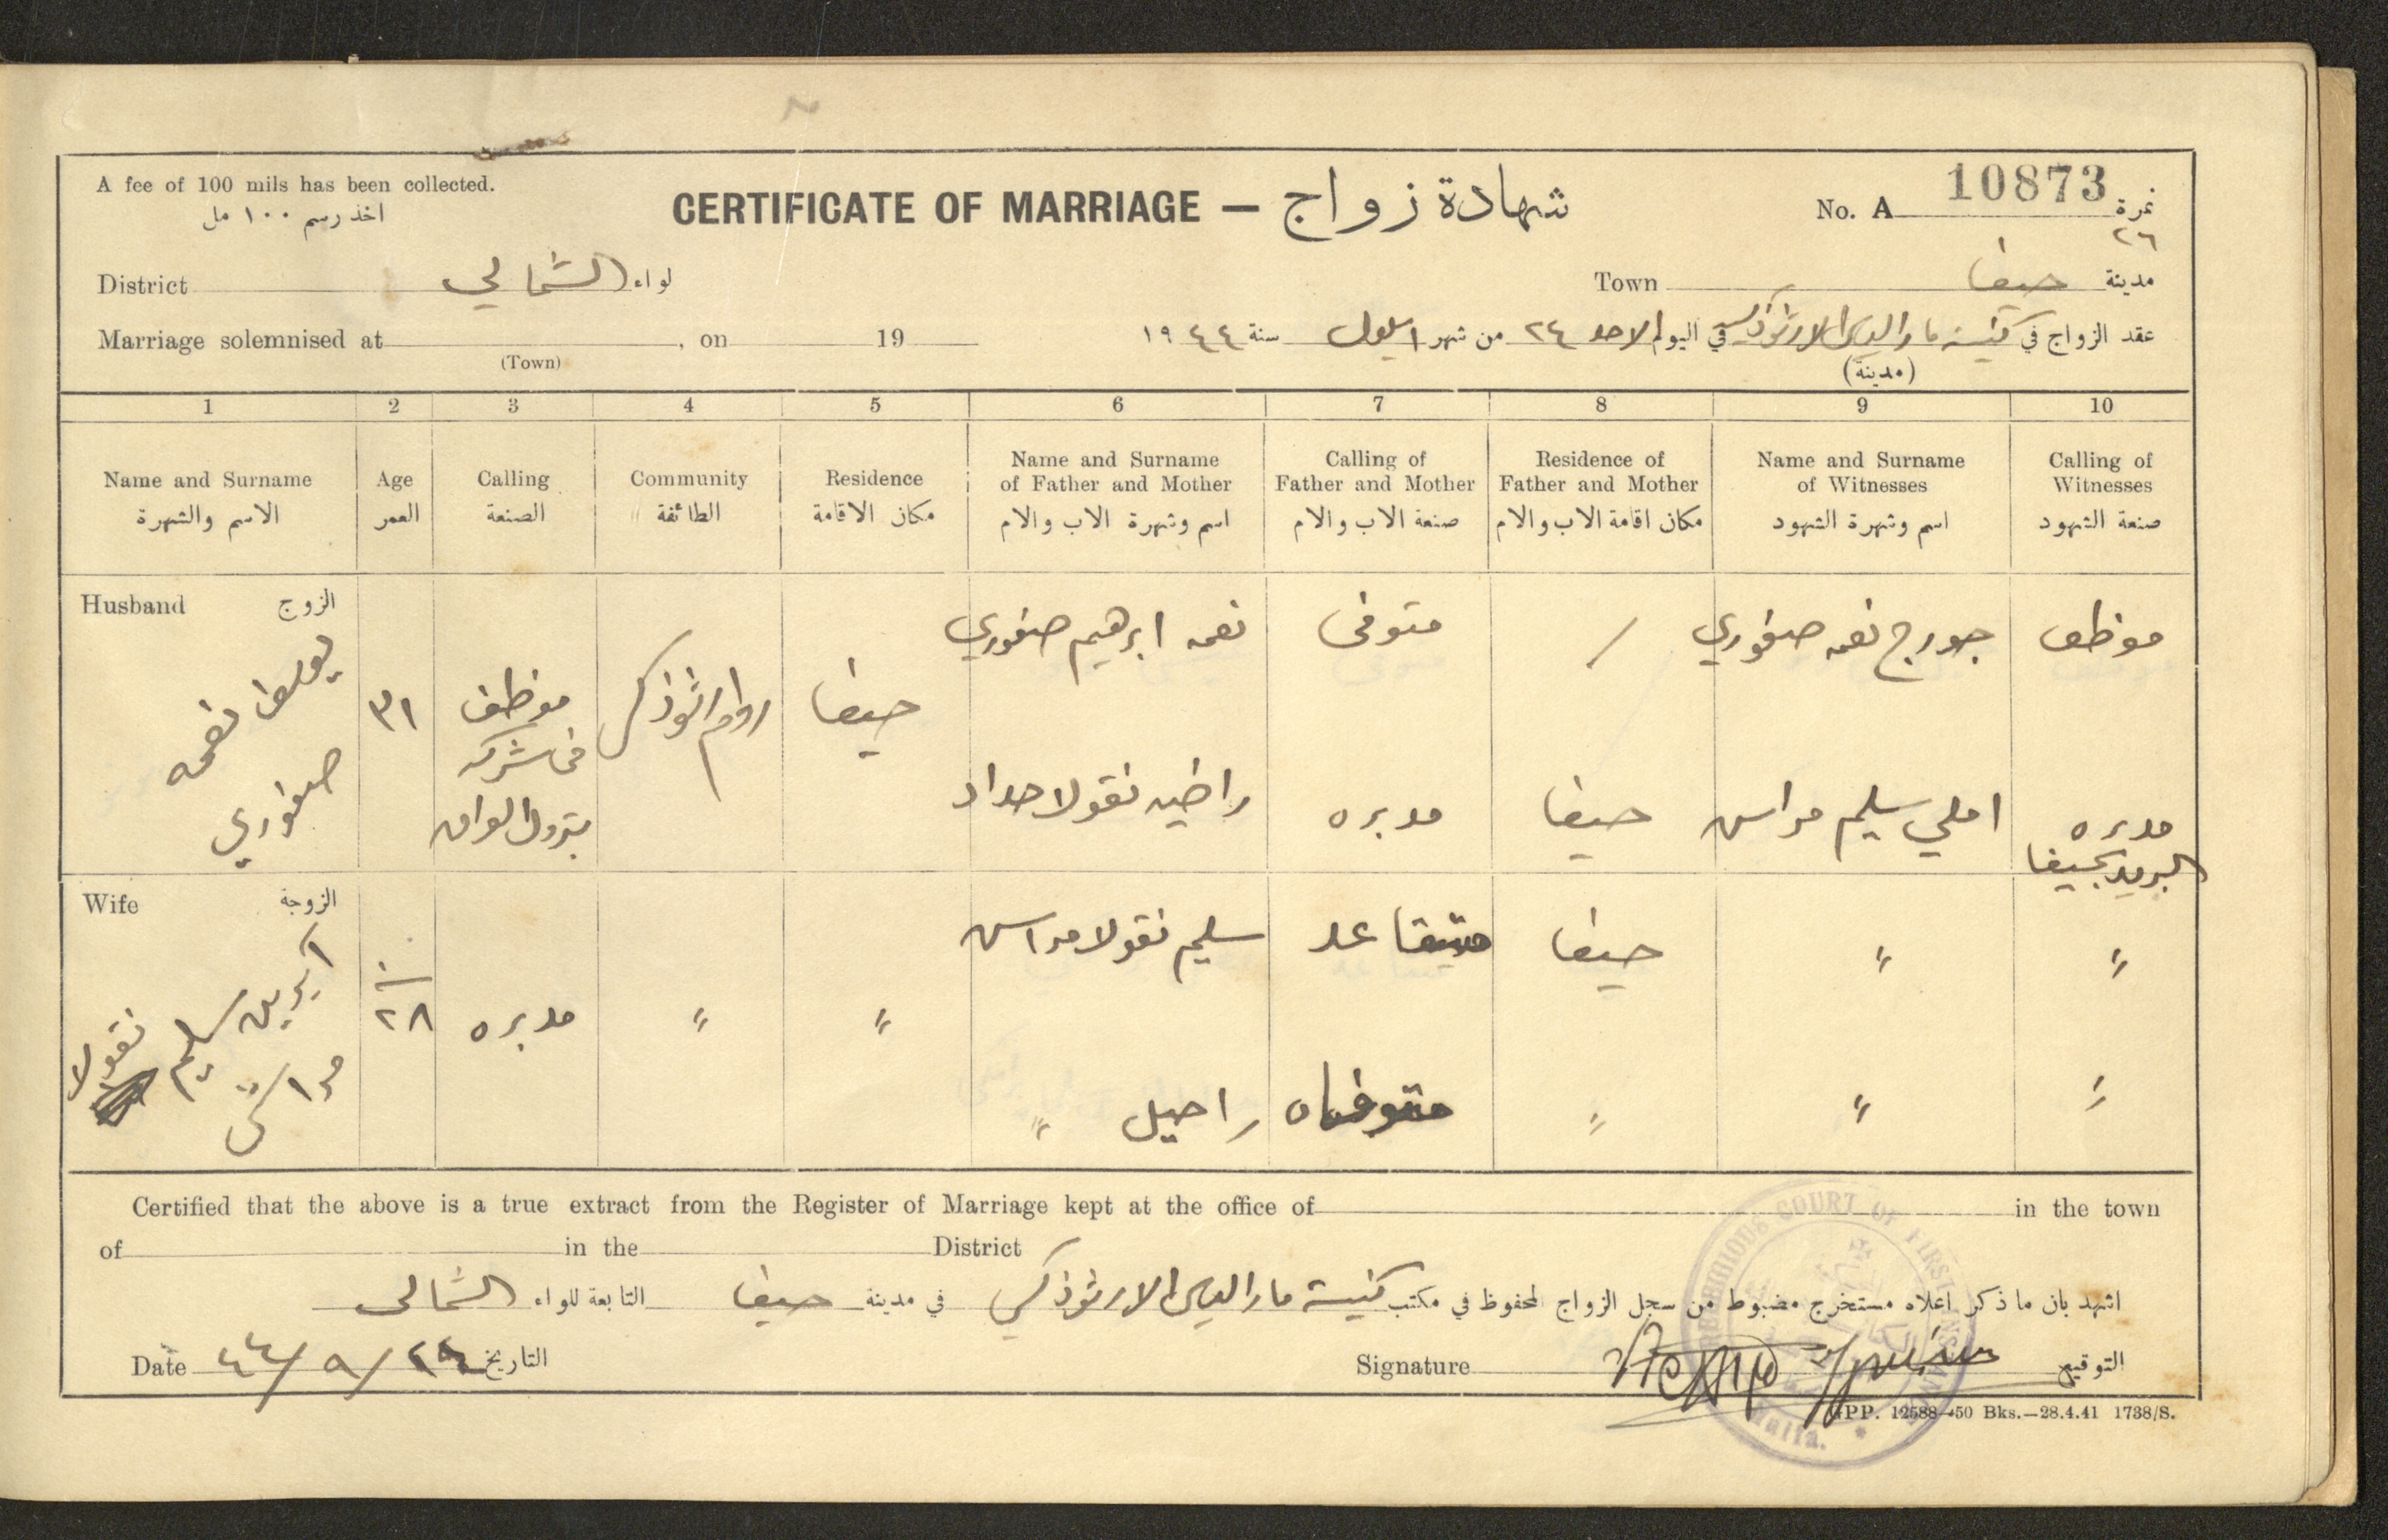 A fee of 100 mils has been collected.
اخذ رسم ١٠٠ مل
CERTIFICATE OF MARRIAGE — شهادة زواج
No. A 10873 نمرة
٢٦
District الشمالي لواء
Town حيفا مدينة
Marriage solemnised at , on 19
(Town)
عقد الزواج في كنيسة مار الياس الارثوذكسية في اليوم الاحد ٢٤ من شهر ايلول سنة ١٩٤٤
(مدينة)
1 2 3 4 5 6 7 8 9 10
Name and Surname
الاسم والشهرة
Age
العمر
Calling
الصنعة
Community
الطائفة
Residence
مكان الاقامة
Name and Surname
of Father and Mother
اسم وشهرة الاب والام
Calling of
Father and Mother
صنعة الاب والام
Residence of
Father and Mother
مكان اقامة الاب والام
Name and Surname
of Witnesses
اسم وشهرة الشهود
Calling of
Witnesses
صنعة الشهود
Husband الزوج
نعمه
صفوري
٣١
موظف
في شركة
بترول العراق
روم ارثوذكس
حيفا
نعمه ابرهيم صفوري
راضيه نقولا حداد
متوفى
مدبره
/
حيفا
جورج نعمه صفوري
املي سليم مراس
موظف
مدبره
البريد بحيفا
Wife الزوجة
آيرين سليم نقولا
مراس
٢٨
مدبره
〃
〃
سليم نقولا مراس
راحيل 〃
متقاعد
متوفاه
حيفا
〃
〃
〃
〃
〃
Certified that the above is a true extract from the Register of Marriage kept at the office of in the town
of in the District
اشهد بان ما ذكر اعلاه مستخرج مضبوط من سجل الزواج المحفوظ في مكتب كنيسة مار الياس الارثوذكسي في مدينة حيفا التابعة للواء الشمالي
Date ٢٤/٩/٤٤ التاريخ
Signature التوقيع
COURT OF FIRST
Haifa.
GPP. 12588—50 Bks.—28.4.41 1738/S.